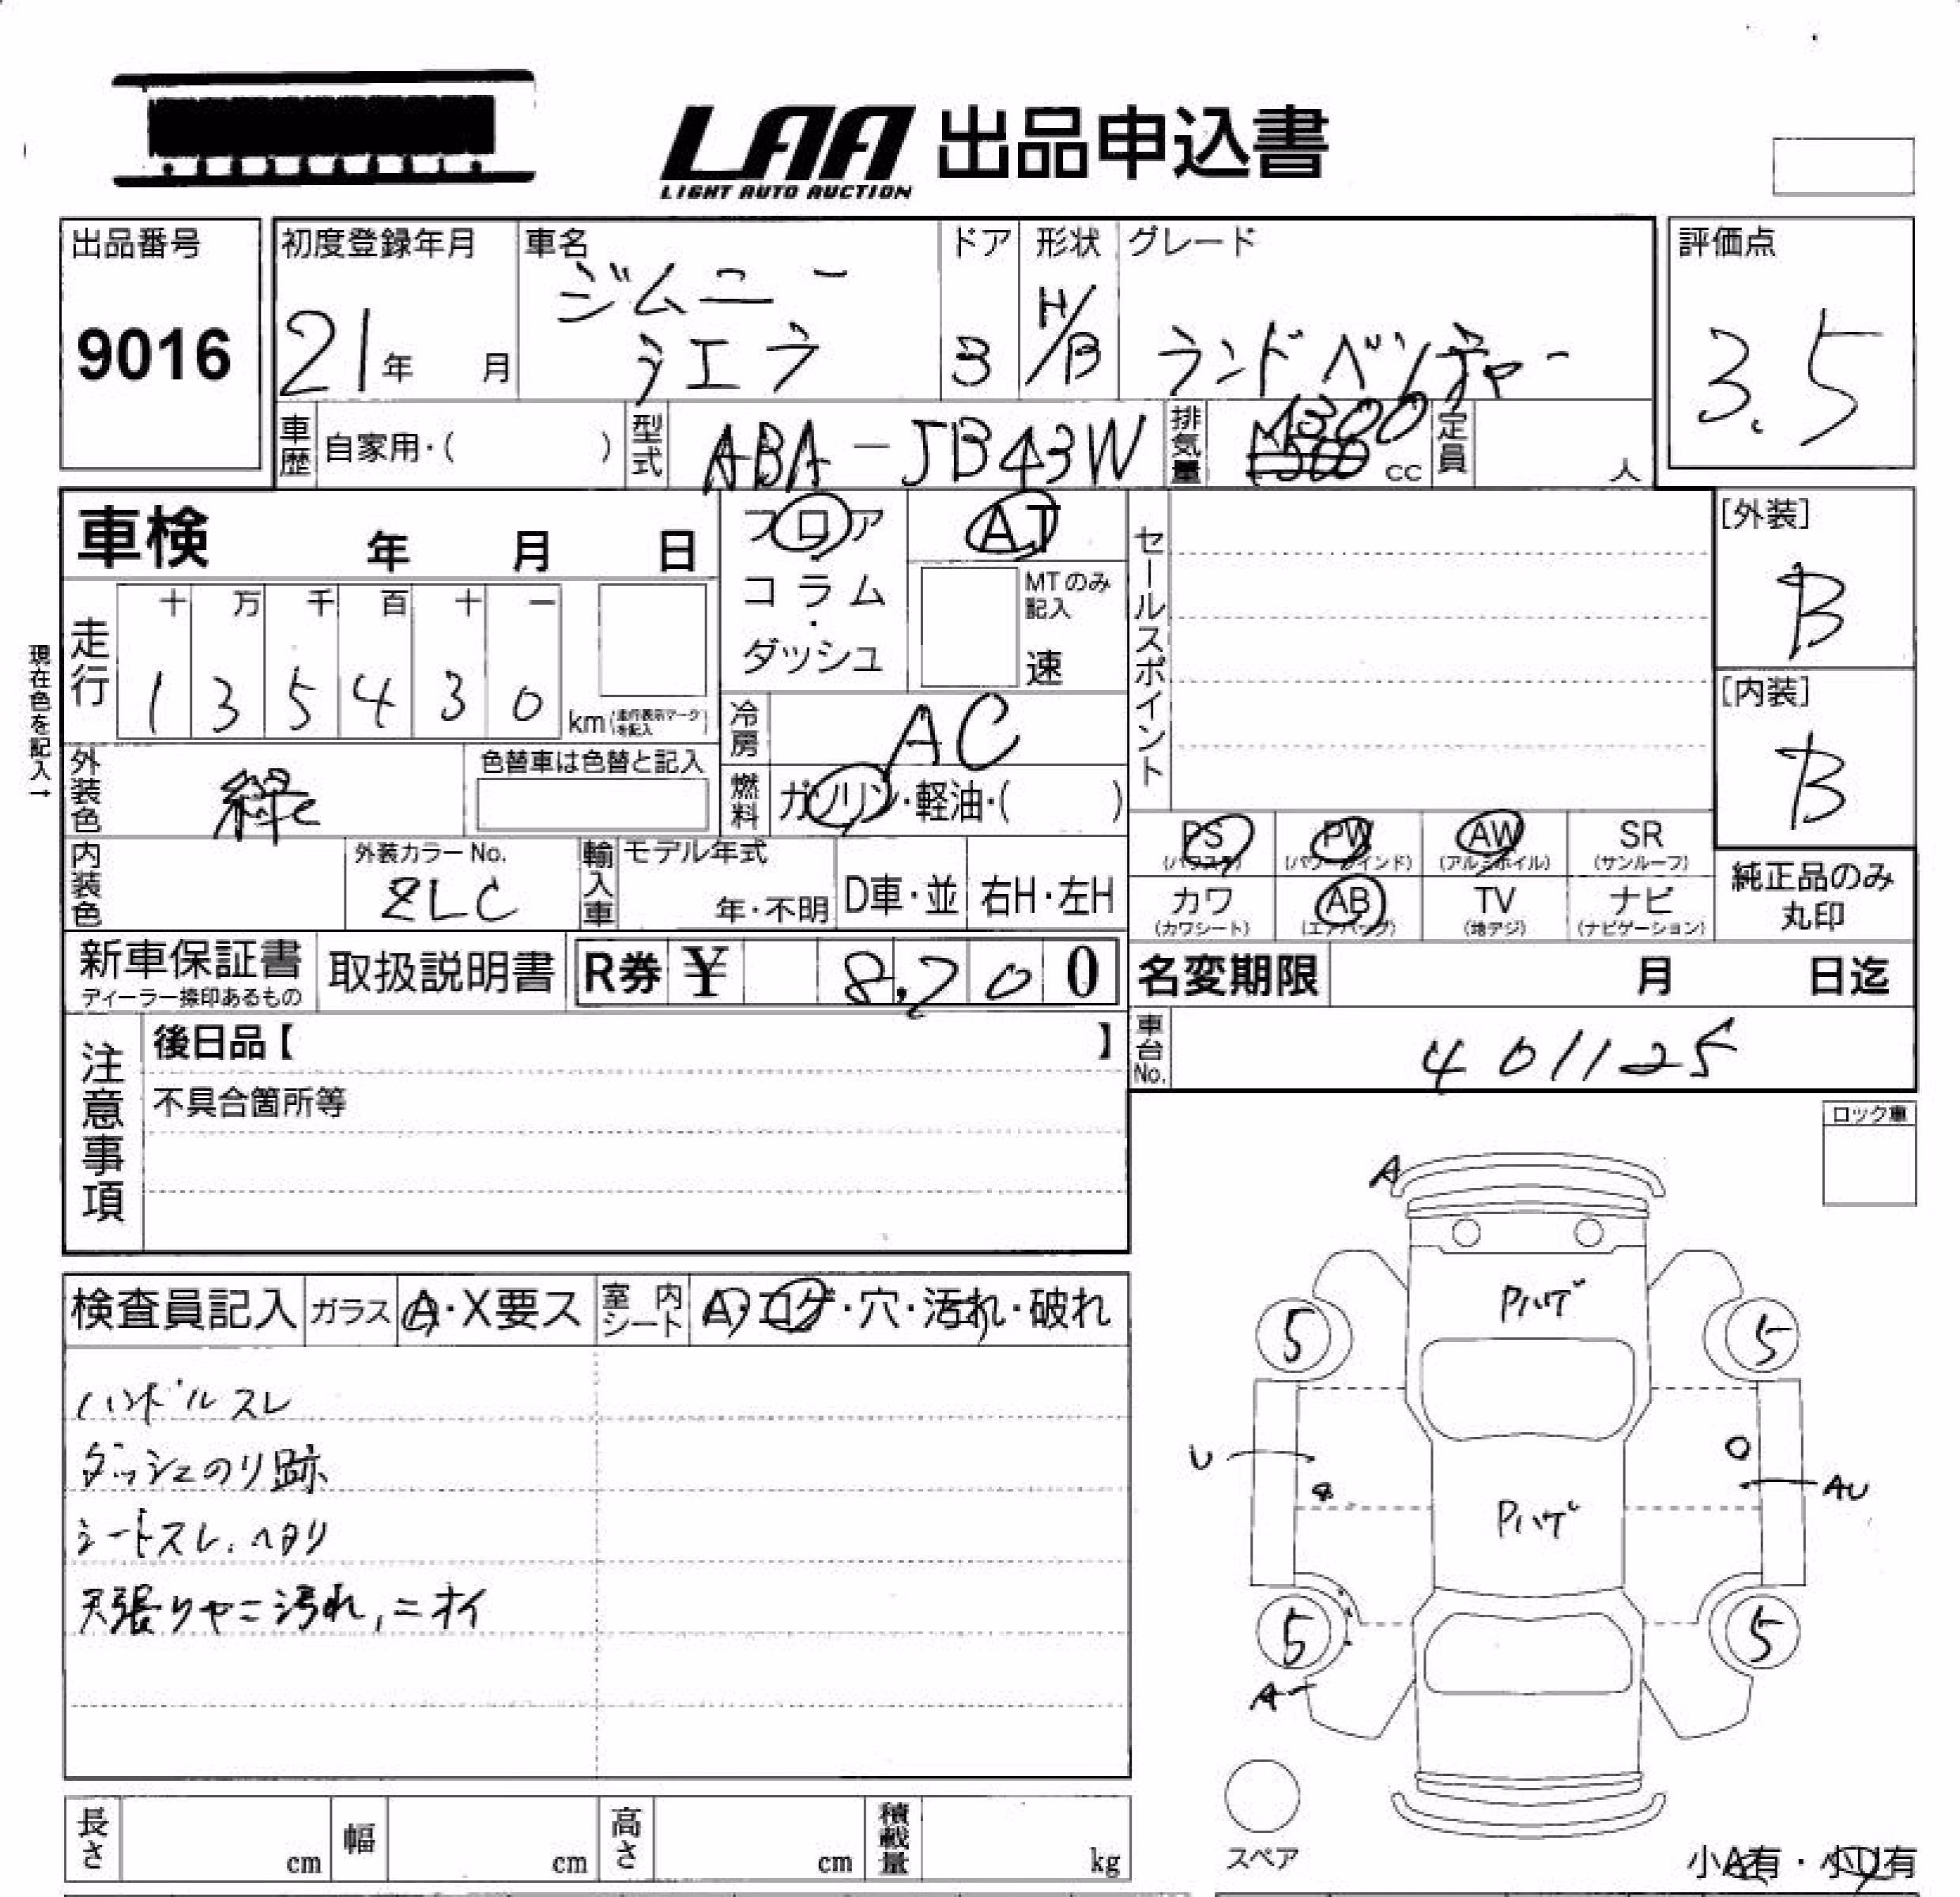 LAA 出品申込書
LIGHT AUTO AUCTION
出品番号
9016
初度登録年月
21年 月
車名
ジムニー
シエラ
ドア
3
形状
H/B
グレード
ランドベンチャー
評価点
3.5
車歴 自家用・( )
型式 ABA-JB43W
排気量 1300 cc
定員 人
車検 年 月 日
フロア
コラム
・
ダッシュ
AT
MTのみ
記入
速
セールスポイント
[外装]
B
[内装]
B
現在色を記入→
走行
十 万 千 百 十 一
1 3 5 4 3 0 km (走行表示マークを記入)
冷房 AC
外装色 緑
色替車は色替と記入
燃料 ガソリン・軽油・( )
PS PW AW SR
(パワステ) (パワーウインド) (アルミホイル) (サンルーフ)
カワ AB TV ナビ
(カワシート) (エアバッグ) (地デジ) (ナビゲーション)
純正品のみ
丸印
内装色
外装カラーNo.
ZLC
輸入車
モデル年式
年・不明
D車・並
右H・左H
新車保証書
ディーラー捺印あるもの
取扱説明書
R券 ¥ 8,200
名変期限 月 日迄
車台No. 401125
注意事項
後日品【 】
不具合箇所等
ロック車
検査員記入
ガラス A・X要ス
室内シート A・コゲ・穴・汚れ・破れ
ハンドルスレ
ダッシュのり跡
シートスレ、ヘタリ
天張りヤニ汚れ,ニオイ
A
Pハゲ
5 5
U
AU
Pハゲ
5 5
A
スペア
小A有・小U有
長さ cm
幅 cm
高さ cm
積載量 kg